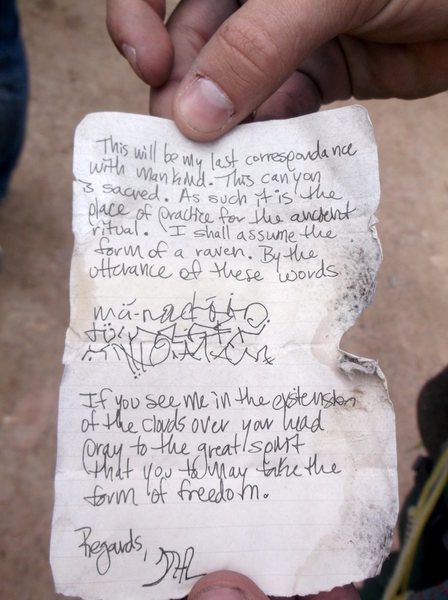 This will be my last correspondance
with mankind. This canyon
is sacred. As such it is the
place of practice for the ancient
ritual. I shall assume the
form of a raven. By the
utterance of these words
If you see me in the
of the clouds over your head
pray to the great spirit
that you to may take the
form of freedom.
Regards,